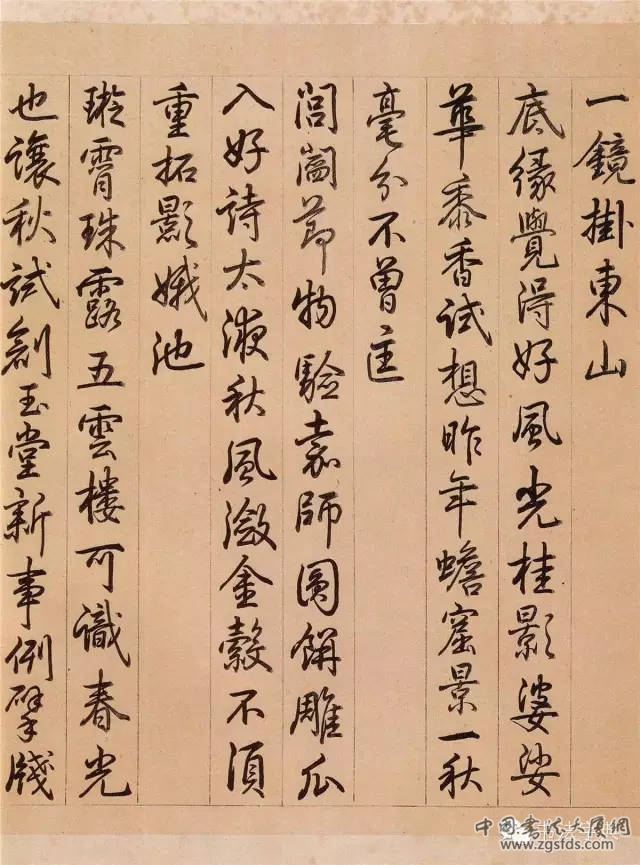 一鏡掛東山
底緣覺得好風光桂影婆娑
華黍香試想昨年蟾窟景一秋
毫分不曾差
閶闔節物驗嘉師圓餅雕瓜
入好詩太液秋風瀲金縠不須
重拓影娥池
璇霄珠露五雲樓可識春光
也讓秋試創玉堂新事例擘牋
中国书法大厦网
www.zgsfds.com